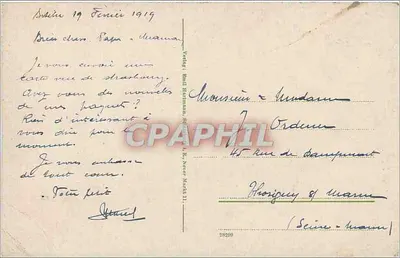 19 Février 1919
Bien chers Papa - Maman
Je vous envoie une
carte vue de Strasbourg.
Avez vous des nouvelles
de mes paquets?
Rien d'intéressant à
vous dire pour le
moment.
Je vous embrasse
de tout cœur.
Votre petit
Verlag: Emil Hartmann,
Neuer Markt
CPARHIL
Monsieur & Madame
45 rue de
s/ Marne
(Seine-Marne)